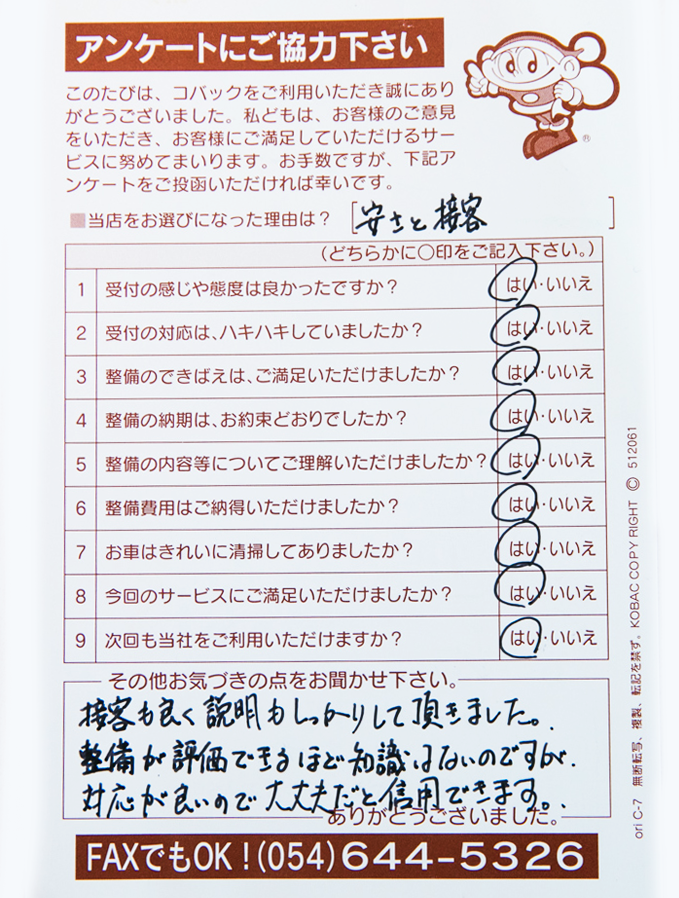 アンケートにご協力下さい
このたびは、コバックをご利用いただき誠にあり
がとうございました。私どもは、お客様のご意見
をいただき、お客様にご満足していただけるサー
ビスに努めてまいります。お手数ですが、下記ア
ンケートをご投函いただければ幸いです。
®
■当店をお選びになった理由は？ [安さと接客]
(どちらかに〇印をご記入下さい。)
1 受付の感じや態度は良かったですか？ はい・いいえ
2 受付の対応は、ハキハキしていましたか？ はい・いいえ
3 整備のできばえは、ご満足いただけましたか？ はい・いいえ
4 整備の納期は、お約束どおりでしたか？ はい・いいえ
5 整備の内容等についてご理解いただけましたか？ はい・いいえ
6 整備費用はご納得いただけましたか？ はい・いいえ
7 お車はきれいに清掃してありましたか？ はい・いいえ
8 今回のサービスにご満足いただけましたか？ はい・いいえ
9 次回も当社をご利用いただけますか？ はい・いいえ
その他お気づきの点をお聞かせ下さい。
接客も良く説明もしっかりして頂きました。
整備が評価できるほど知識はないのですが、
対応が良いので大丈夫だと信用できます。
ありがとうございました。
FAXでもOK！(054)644-5326
ori C-7 無断転写、複製、転記を禁ず。KOBAC COPY RIGHT © 512061